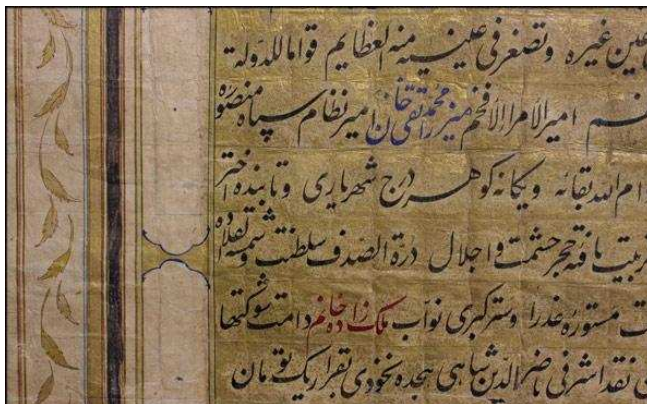 عین غیره وتصغر فی عینیه منه العظایم قواماللدولة
امیرالأمرالافخم میرزا محمد تقی خان امیرنظام سپاه منصوره
دام الله بقائه ویگانه گوهر درج شهریاری وتابنده اختر
تربیت یافته حجر حشمت واجلال درة الصدف سلطنت وشمسه قلاده
مستوره عذرا وستر کبری نواب ملک زاده خانم دامت شوکتها
نقد اشرفی ناصرالدین شاهی هجده نخودی بقرار یک تومان